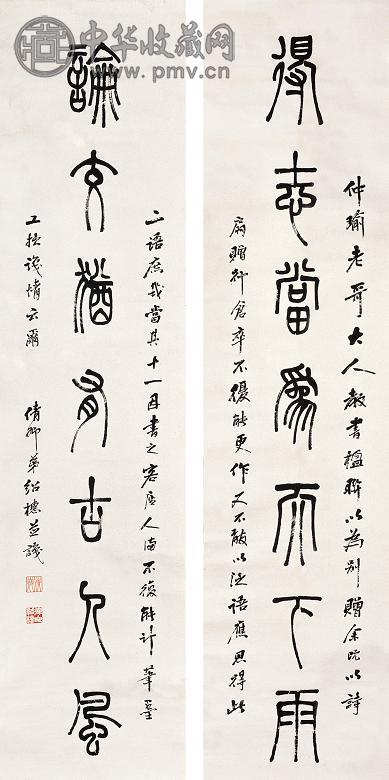 中华收藏网
www.pmv.cn
得志當為天下雨
仲瑜老哥大人教書楹聯以為別贈余既以詩
扇贈行倉卒不復能更作又不敢以泛語應思得此
論交猶有古人風
二語庶幾當其十一因書之客居人海不復能計筆墨
工拙識情云爾 弟紹並識